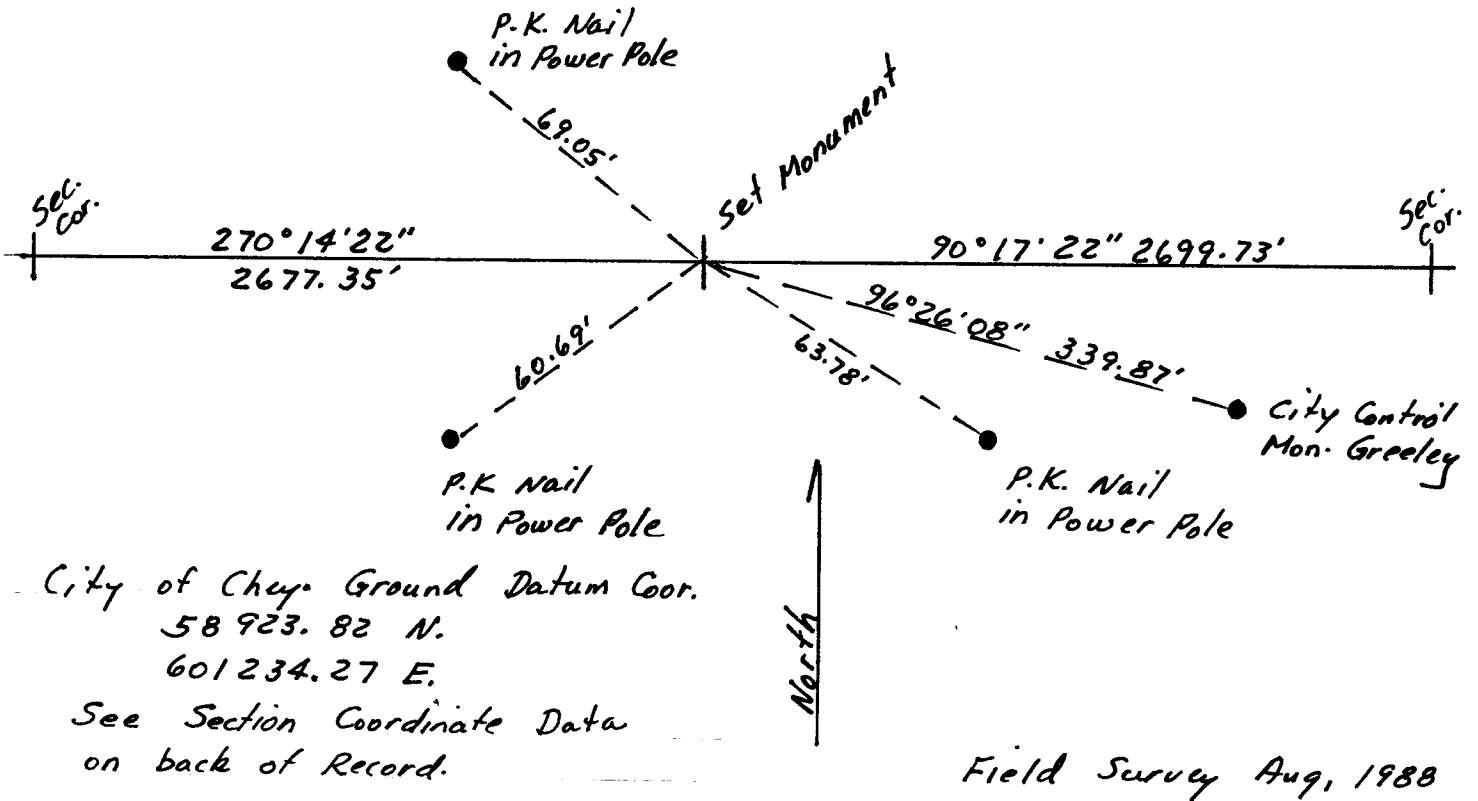 P.K. Nail
in Power Pole
69.05'
Set Monument
Sec.
Cor.
270°14'22"
2677.35'
90°17'22" 2699.73'
Sec.
Cor.
96°26'08" 339.87'
60.69'
63.78'
City Control
Mon. Greeley
P.K Nail
in Power Pole
P.K. Nail
in Power Pole
City of Chey. Ground Datum Coor.
58 923.82 N.
601 234.27 E.
See Section Coordinate Data
on back of Record.
North
Field Survey Aug, 1988